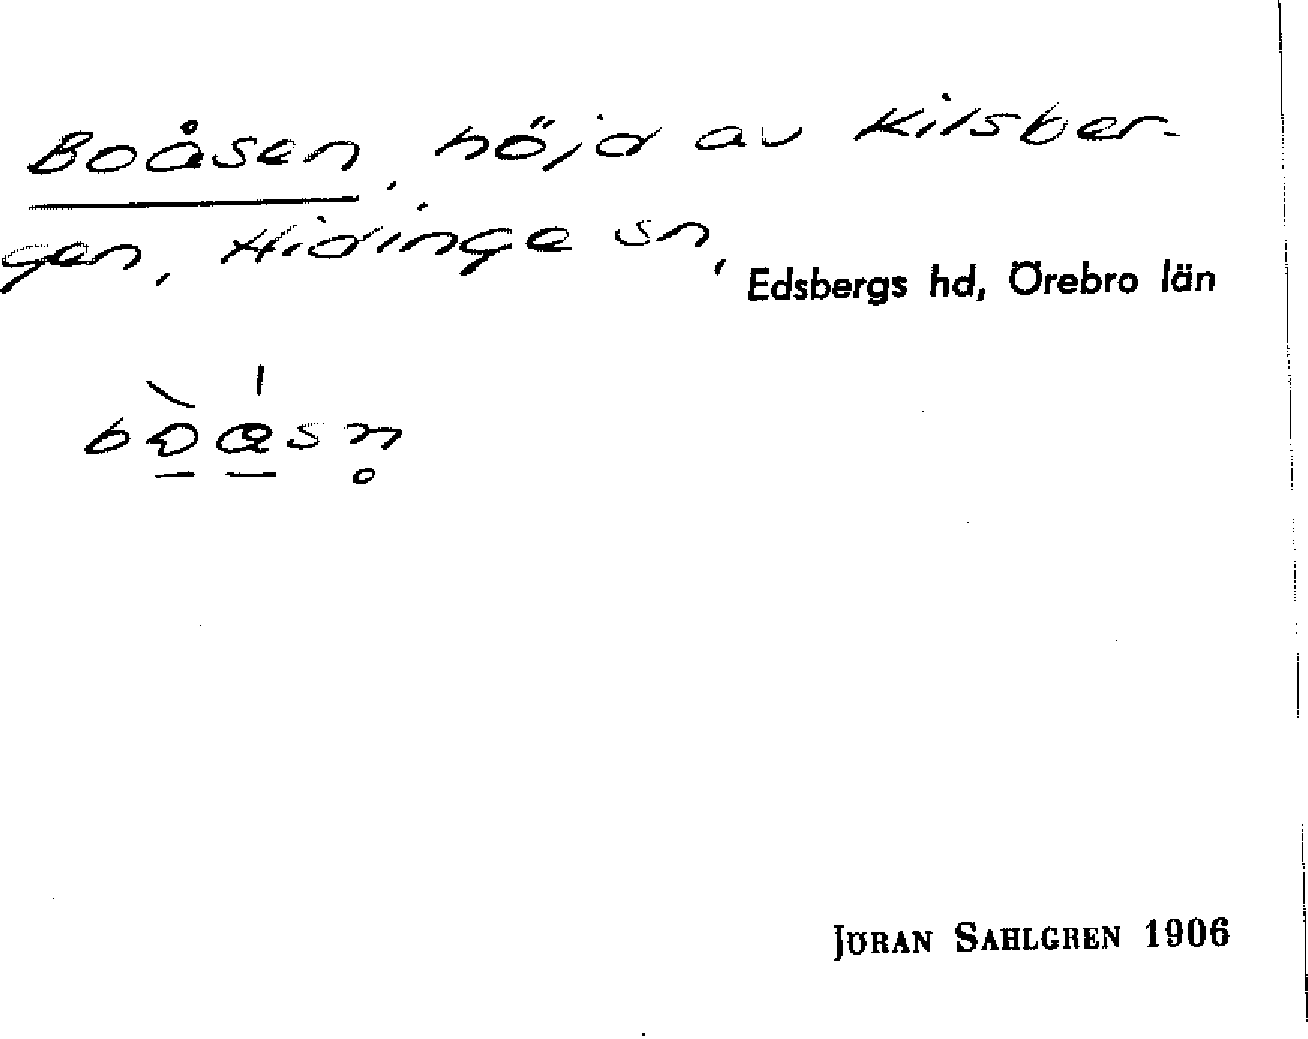 Boåsen, höjd av Kilsber-
gen, Hidinge sn, Edsbergs hd, Örebro län
JÖRAN SAHLGREN 1906